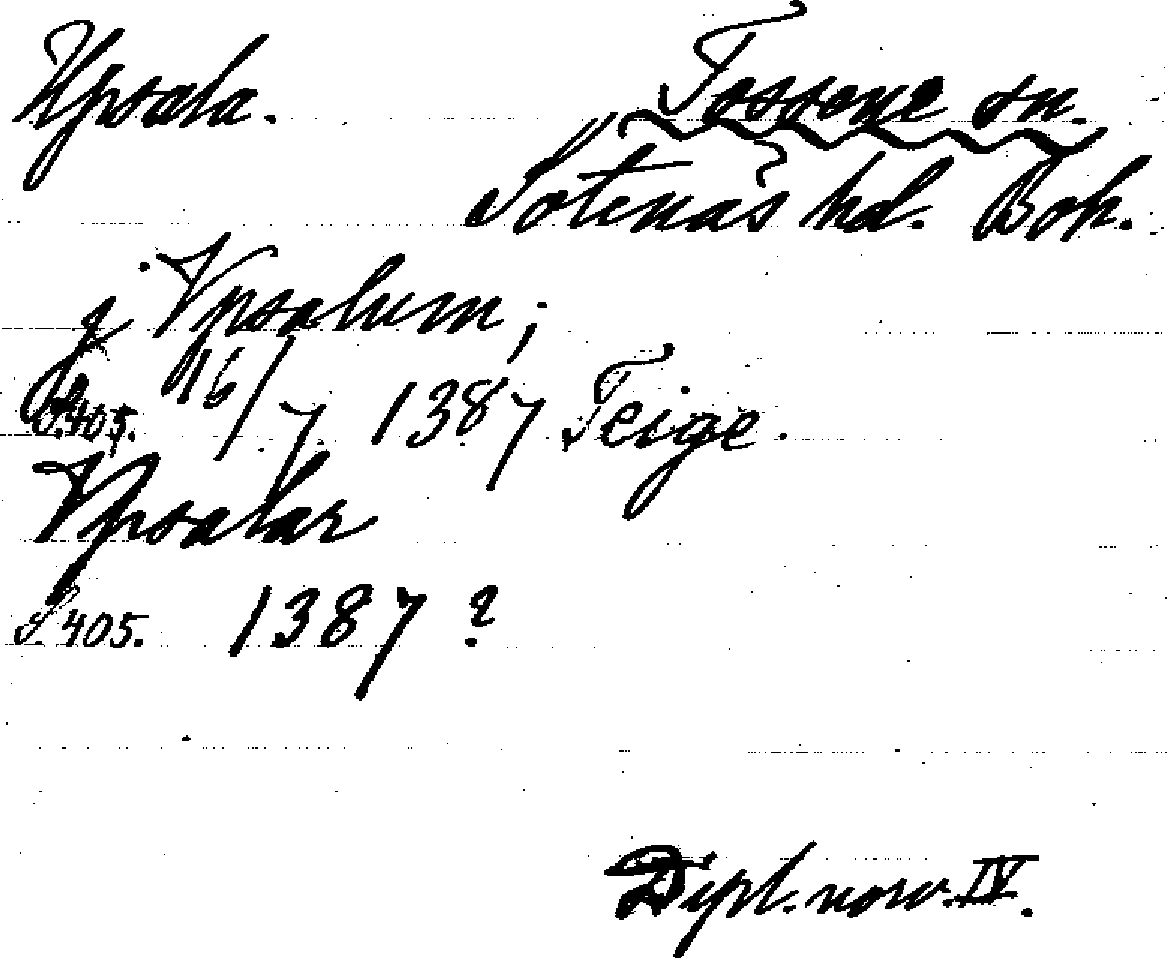 Upsala. Tossene sn.
Sotenäs hd. Boh.
j Vpsalum;
S. 405. 16/7 1387 Teige.
Vpsalar
S. 405. 1387 ?
Dipl. norv. IV.